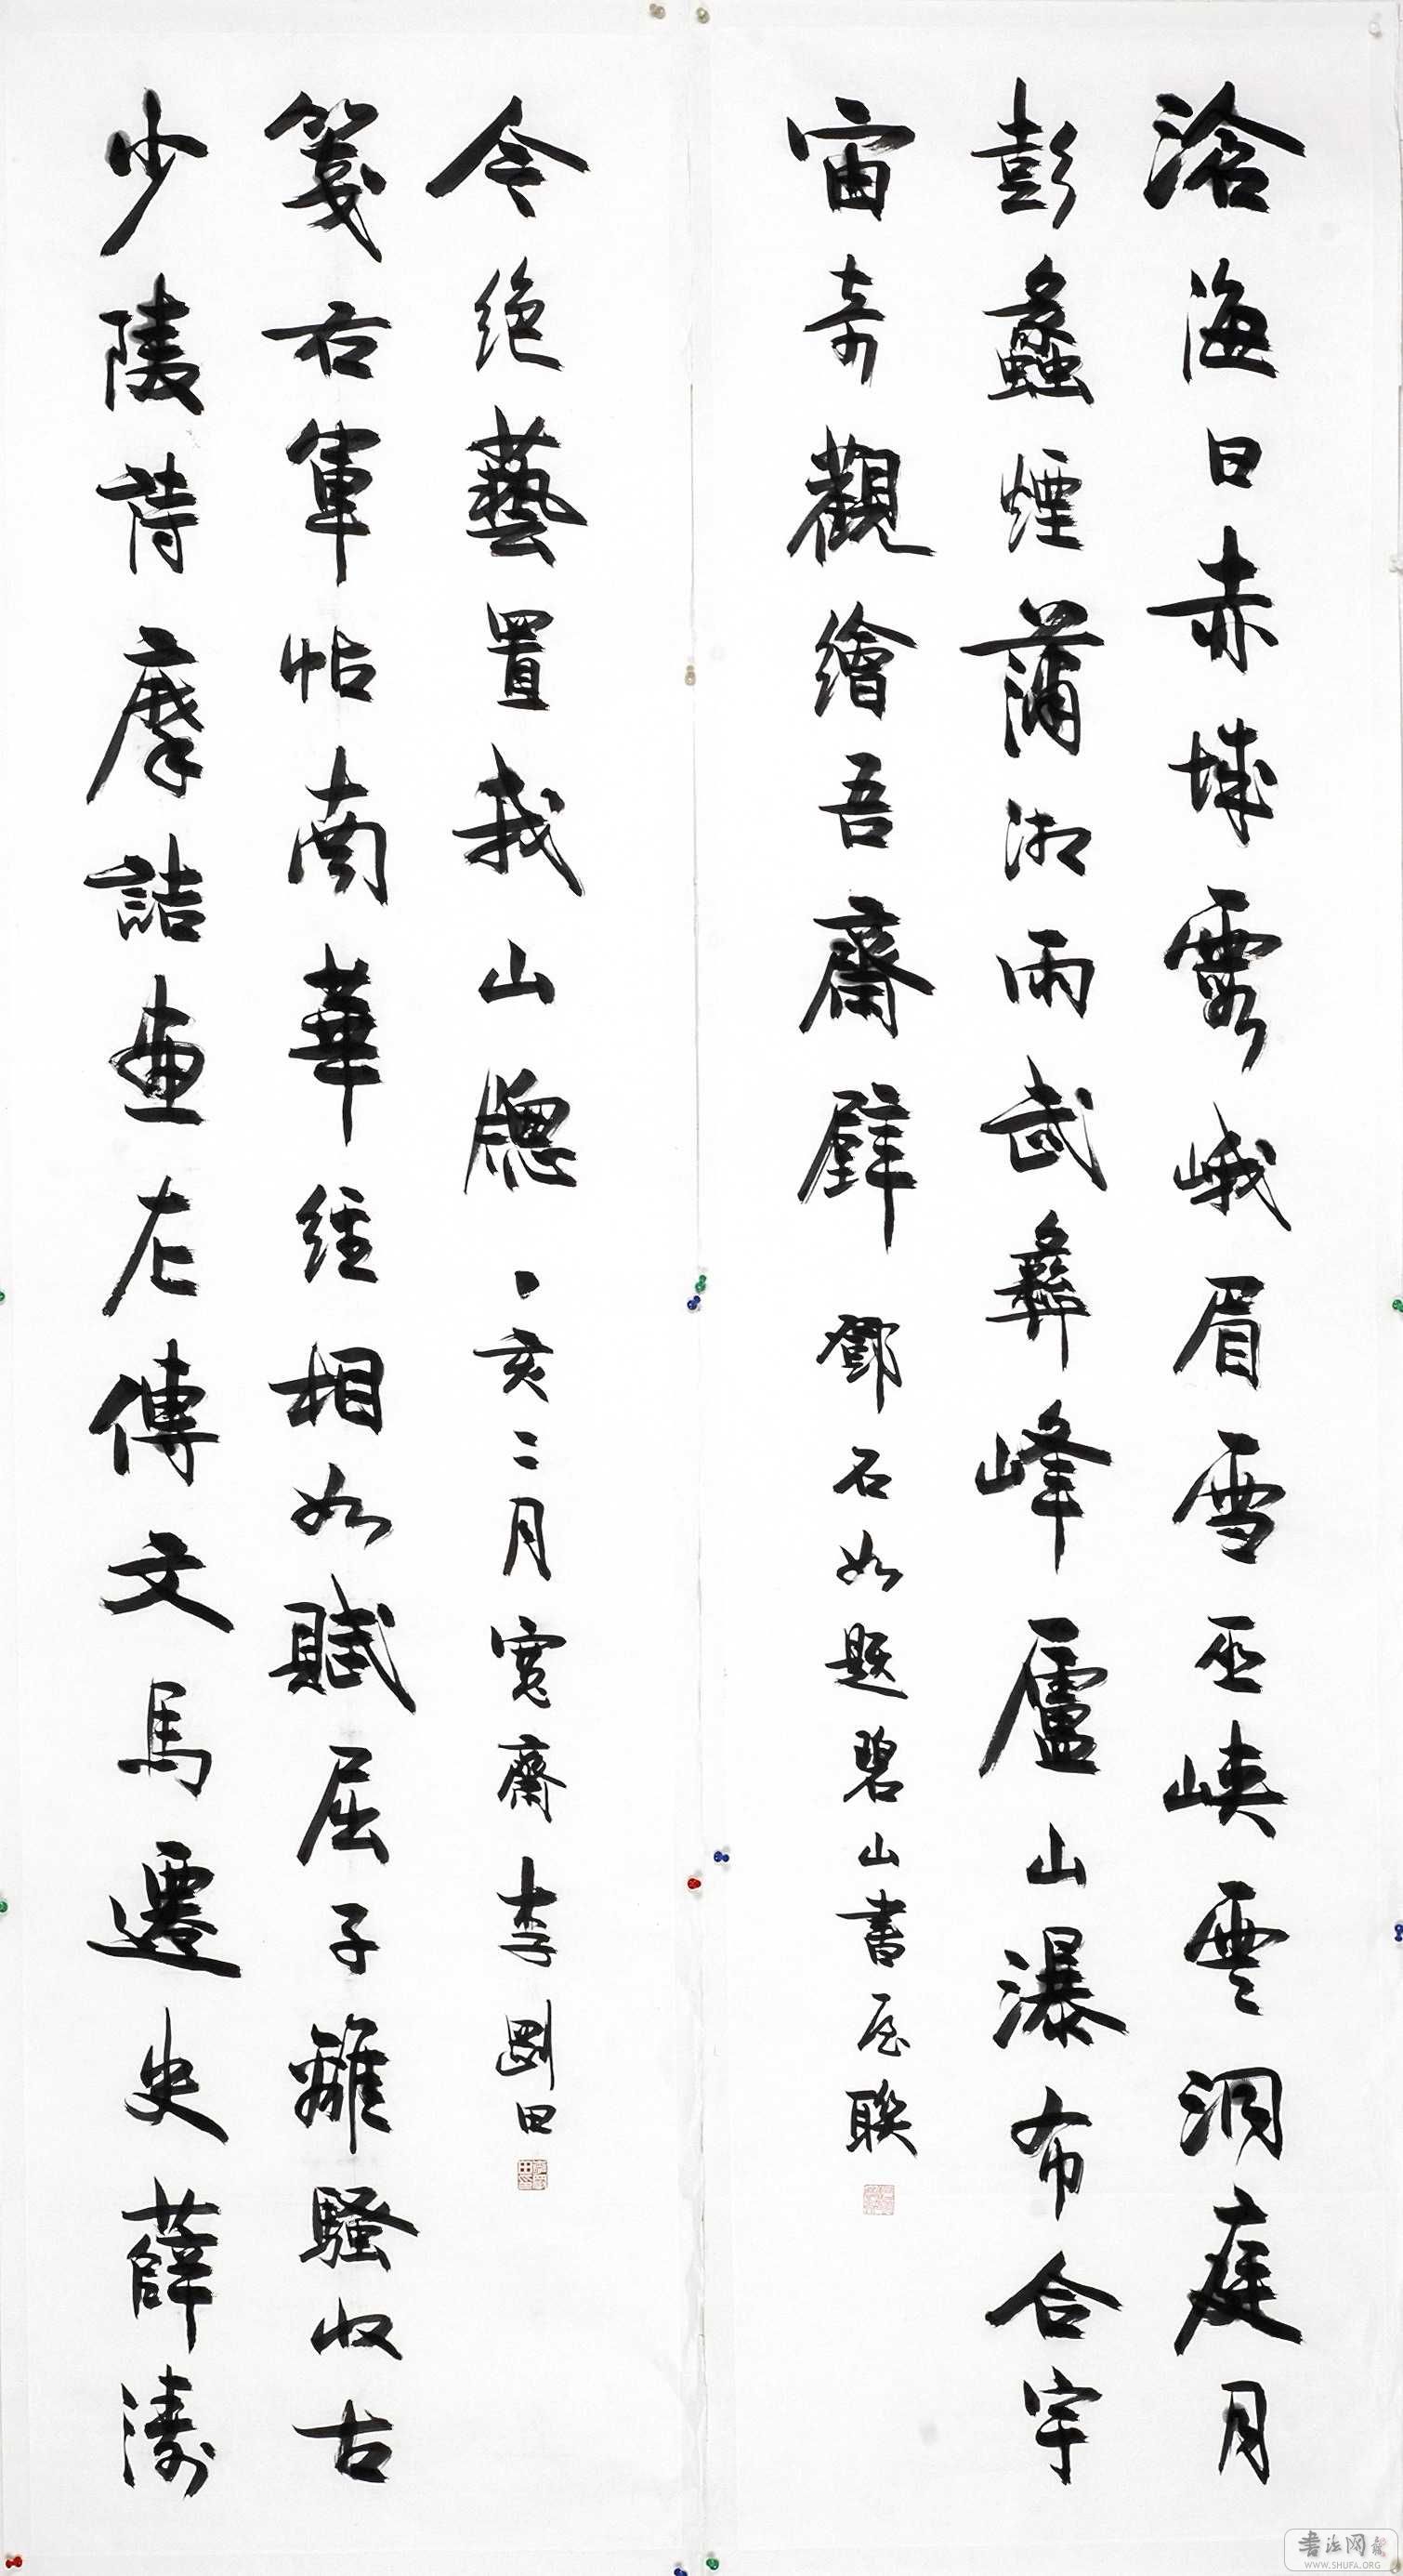 滄海日赤城霞峨眉雪巫峽雲洞庭月
彭蠡煙瀟湘雨武彝峰廬山瀑布合宇
宙奇觀繪吾齋壁 鄧石如題碧山書屋聯
少陵詩摩詰畫左傳文馬遷史薛濤
箋右軍帖南華經相如賦屈子離騷收古
今絶藝置我山牕 丁亥二月寬齋李剛田
書法网
WWW.SHUFA.ORG